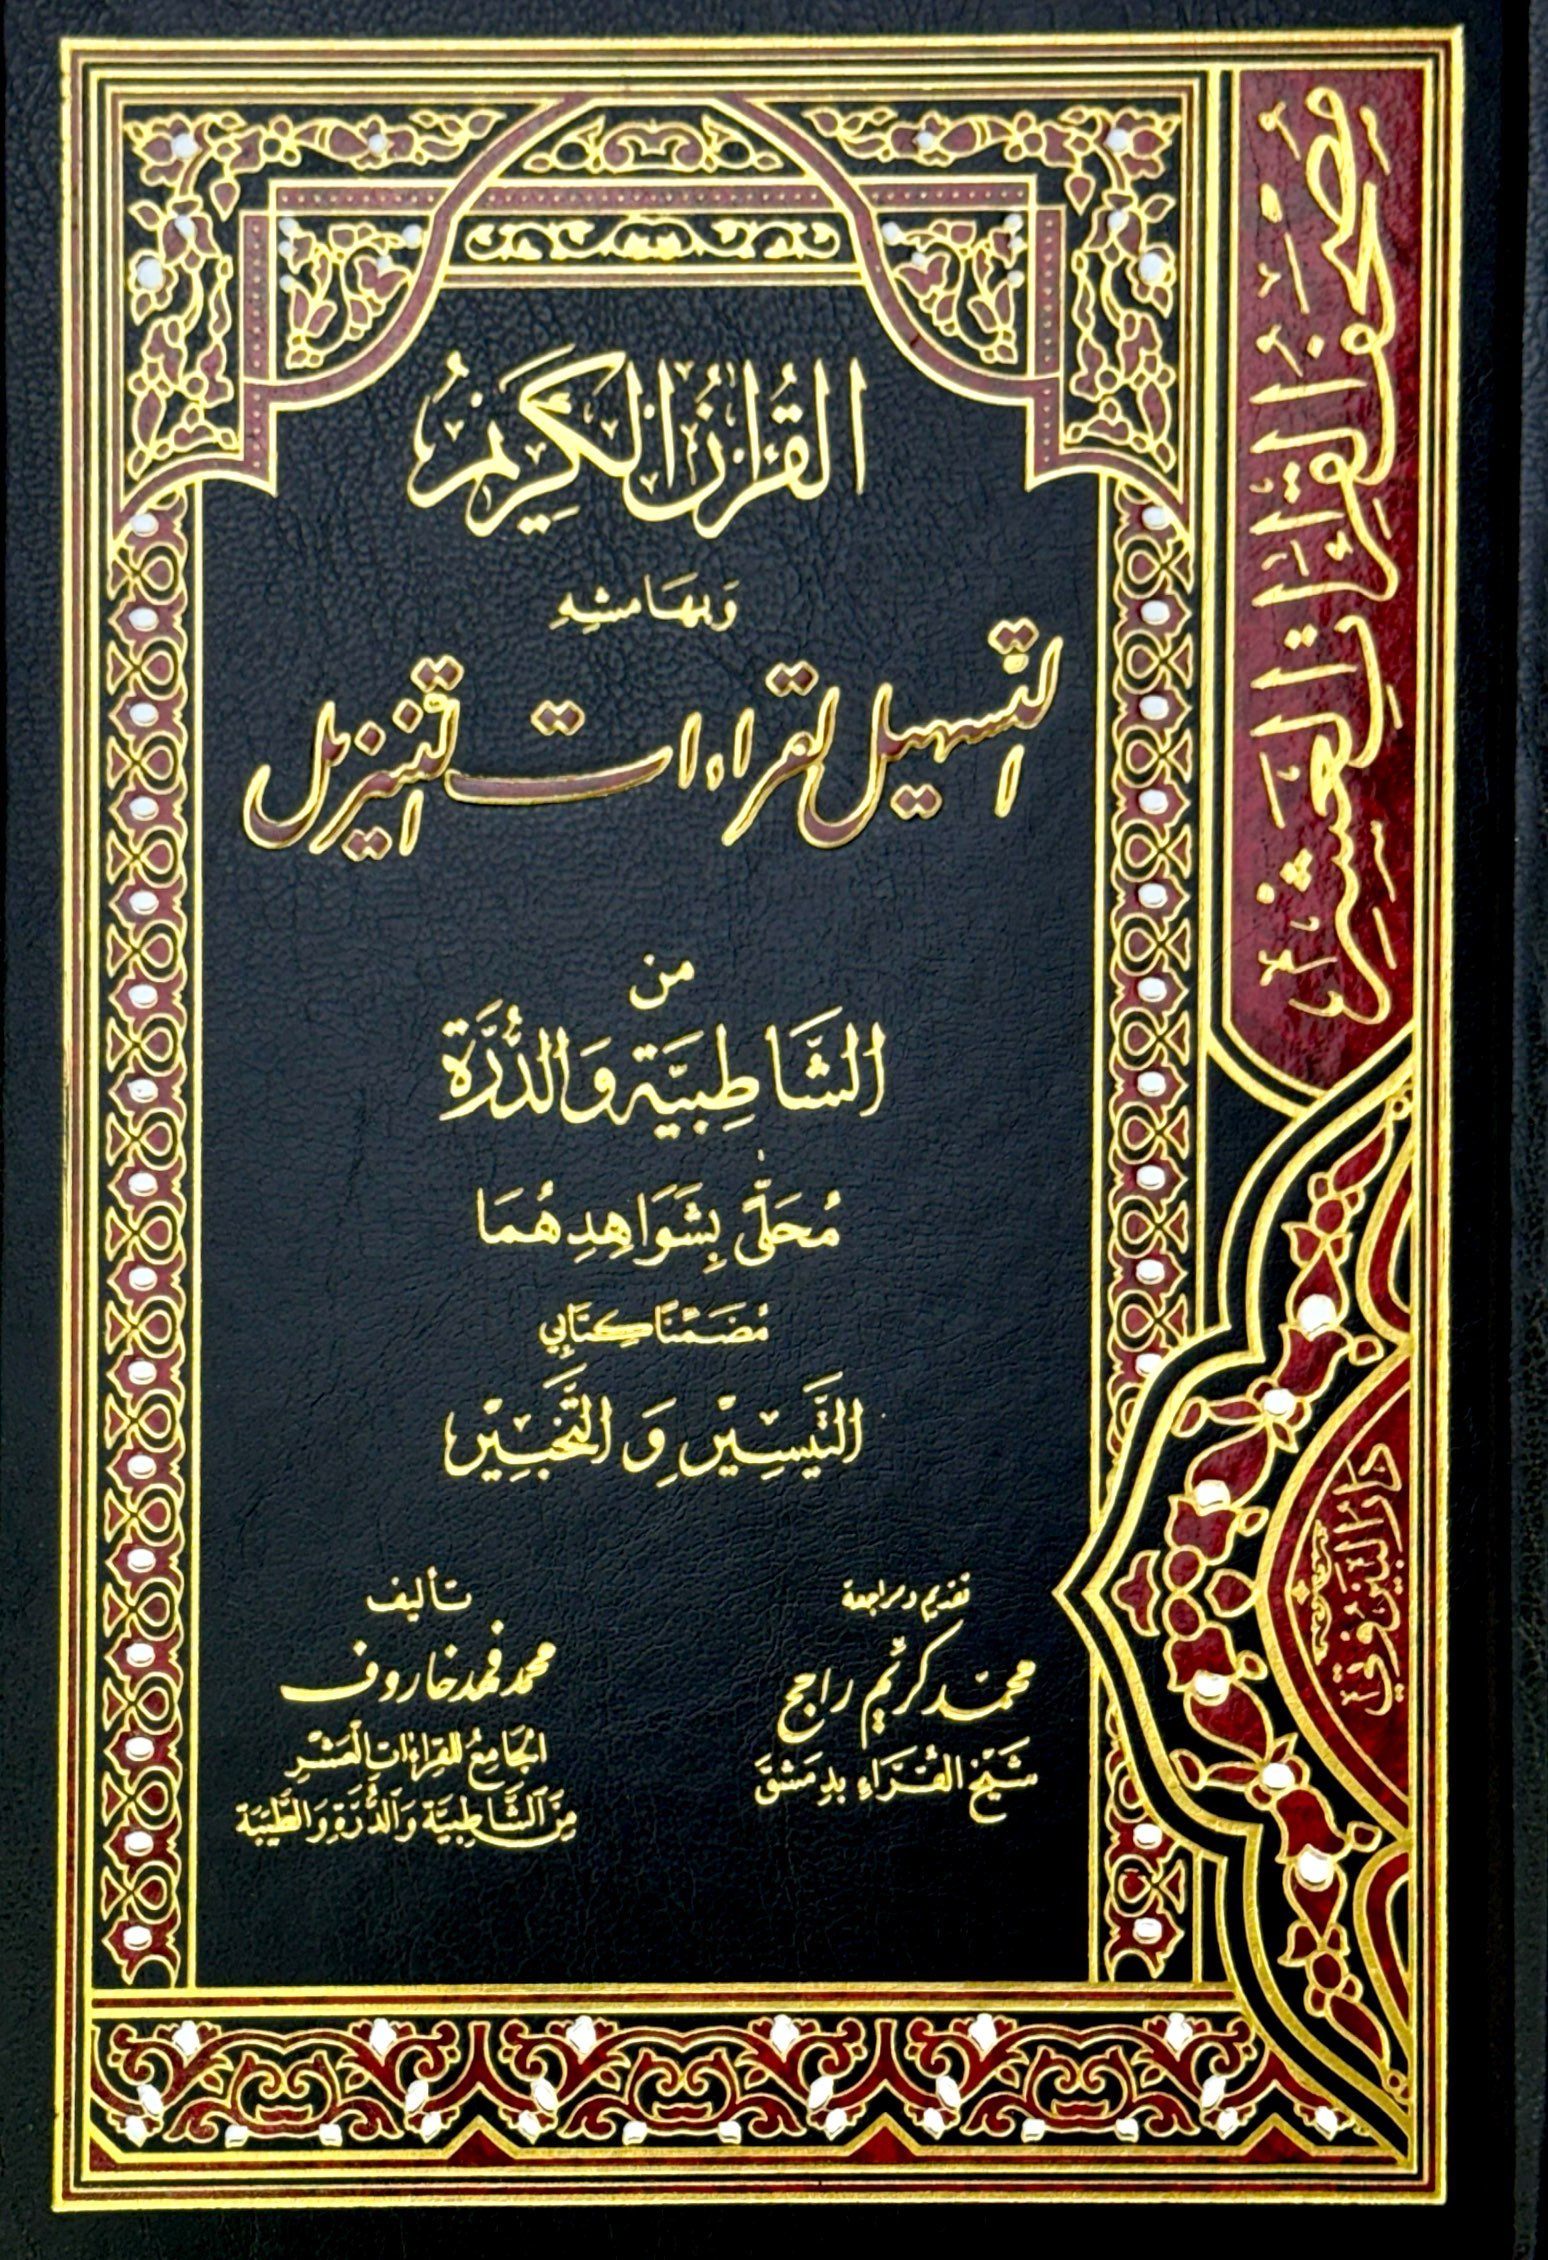 القرآن الكريم
وبهامشه
التسهيل لقراءات التنزيل
من
الشَّاطِبيَّة وَالدُّرَّة
مُحَلَّى بِشَوَاهِدِهُمَا
مُضَمَّنًا كِتَابَي
التَّيْسِيْر وَ التَّحْبِيْر
تقديم ومراجعة
محمّد كريّم راجح
شَيْخ القُرَّاءِ بدِمَشق
تأليف
محمد فهد خاروف
الجَامِعُ للقِراءَات العَشْرِ
مِنَ الشَّاطِبيَّة وَالدُّرَّةِ وَالطَّيِّبَة
مُصْحَف القِرَاءَاتِ العَشْرِ
دَار البَيْرُوتي